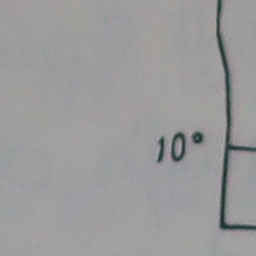 10°